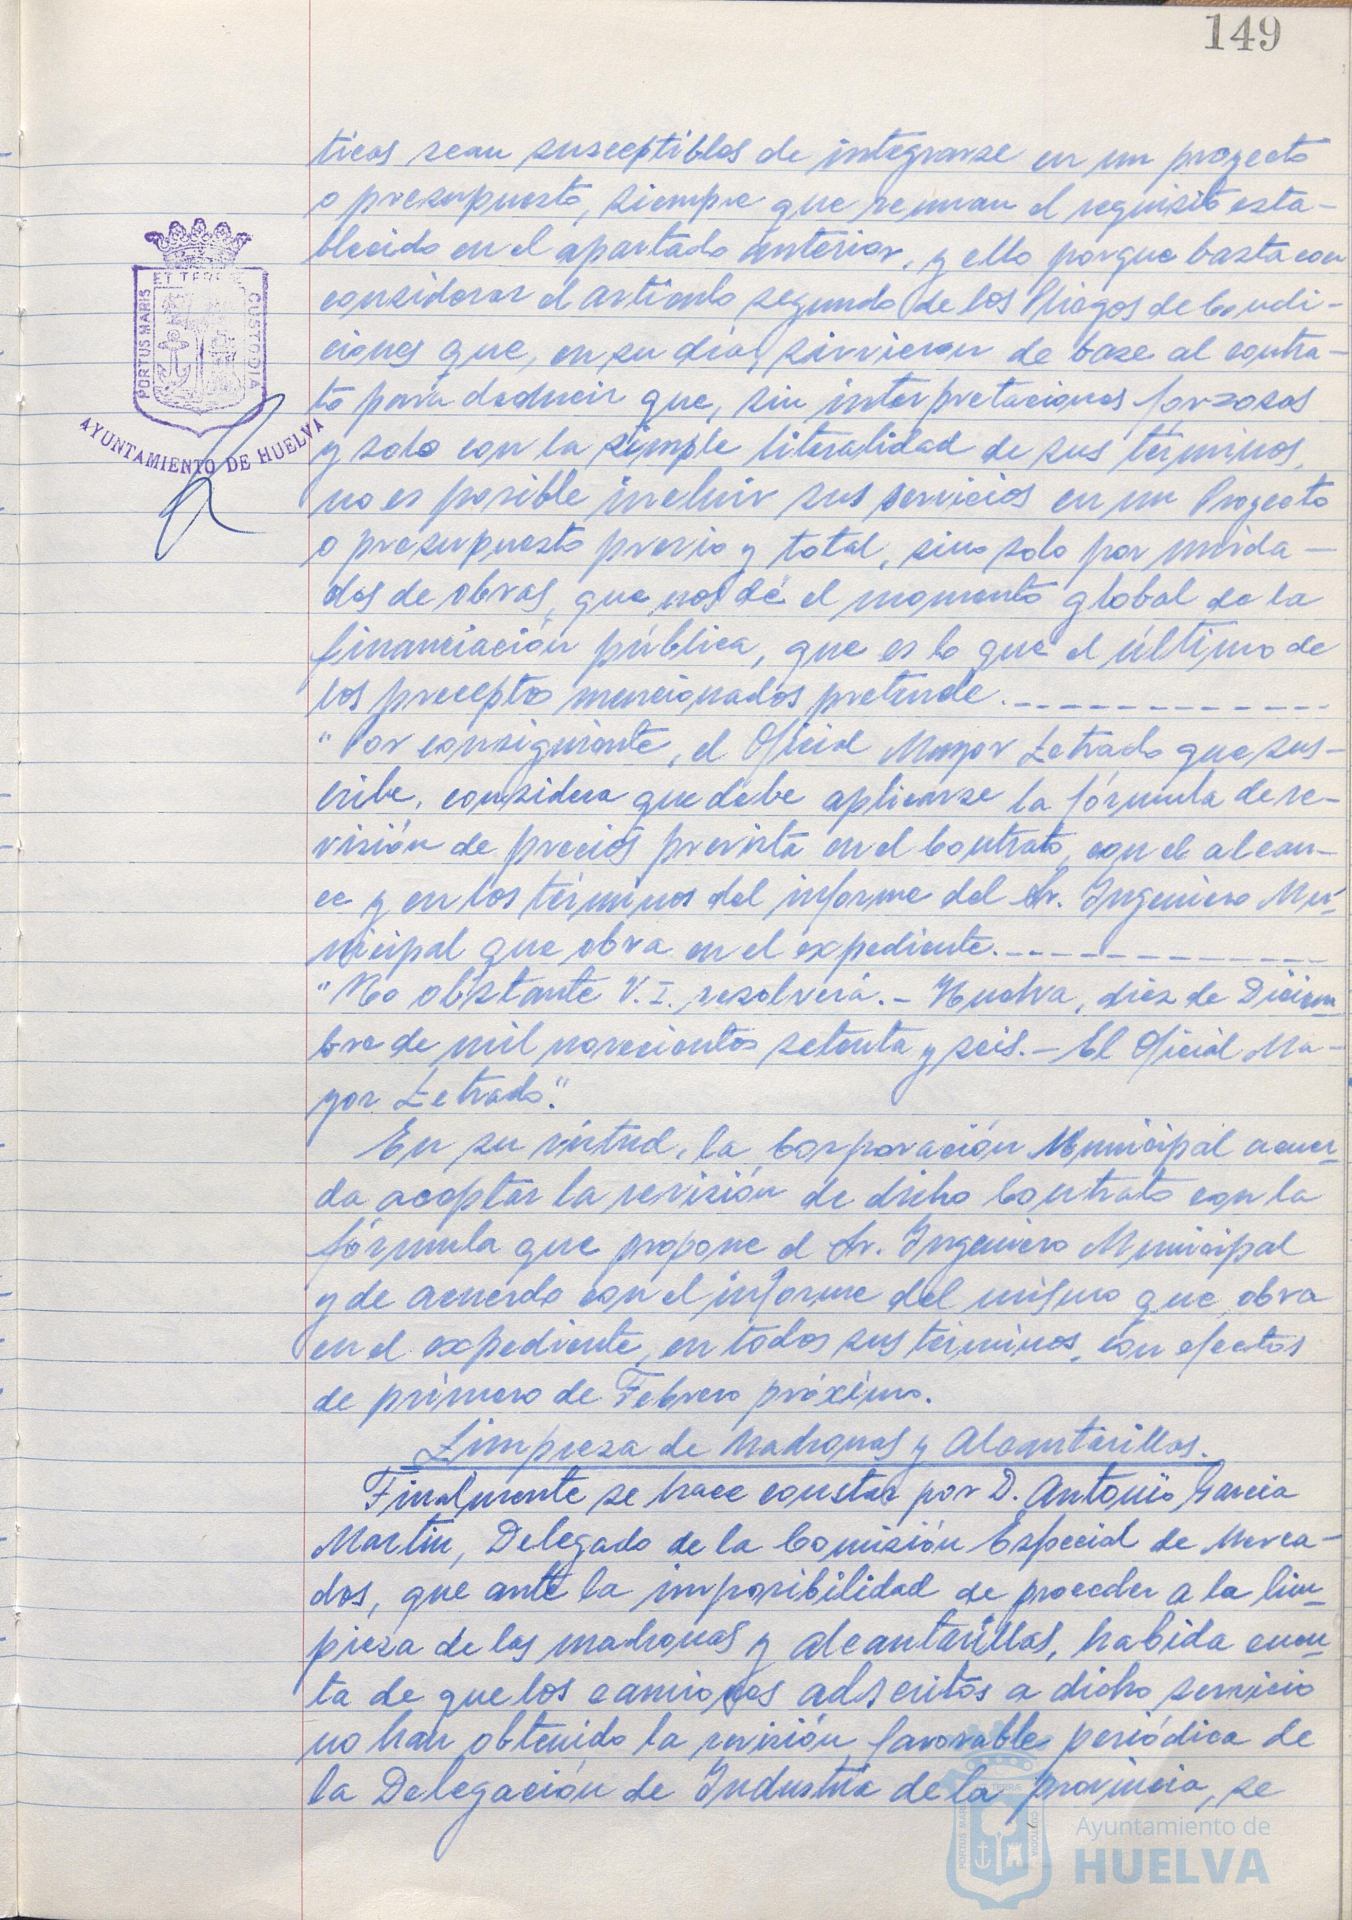 149
ticas sean susceptibles de integrarse en un proyecto
o presupuesto, siempre que reunan el requisito esta-
blecido en el apartado anterior, y ello porque basta con
considerar el artículo segundo de los Pliegos de Condi-
ciones que, en su día, sirvieron de base al contra-
to para deducir que, sin interpretaciones forzosas
y solo con la simple literalidad de sus términos,
no es posible incluir sus servicios en un Proyecto
o presupuesto previo y total, sino solo por unida-
des de obras, que nos dé el momento global de la
financiación pública, que es lo que el último de
los preceptos mencionados pretende.
"Por consiguiente, el Oficial Mayor Letrado que sus-
cribe, considera que debe aplicarse la fórmula de re-
visión de precios prevista en el Contrato, con el alcan-
ce y en los términos del informe del Sr. Ingeniero Mu-
nicipal que obra en el expediente.
"No obstante V.I. resolverá.- Huelva, diez de Diciem-
bre de mil novecientos setenta y seis.- El Oficial Ma-
yor Letrado".
En su virtud, la Corporación Municipal acuer-
da aceptar la revisión de dicho Contrato con la
fórmula que propone el Sr. Ingeniero Municipal
y de acuerdo con el informe del mismo que obra
en el expediente, en todos sus términos, con efectos
de primero de Febrero próximo.
Limpieza de Madronas y Alcantarillas.
Finalmente se hace constar por D. Antonio García
Martín, Delegado de la Comisión Especial de Merca-
dos, que ante la imposibilidad de proceder a la lim-
pieza de las madronas y alcantarillas, habida cuen-
ta de que los camiones adscritos a dicho servicio
no han obtenido la revisión favorable periódica de
la Delegación de Industria de la provincia, se
PORTUS MARIS
ET TERRE
CUSTODIA
AYUNTAMIENTO DE HUELVA
Ayuntamiento de
HUELVA